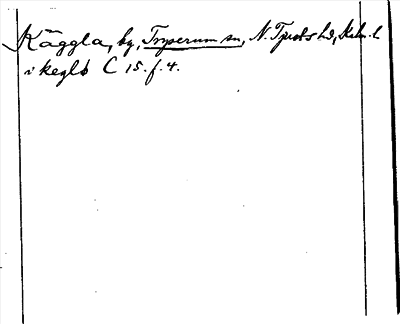 Käggla, by, Tryserum sn, N. Tjusts hd, Kalm. l
i keglø C 15. f. 4.